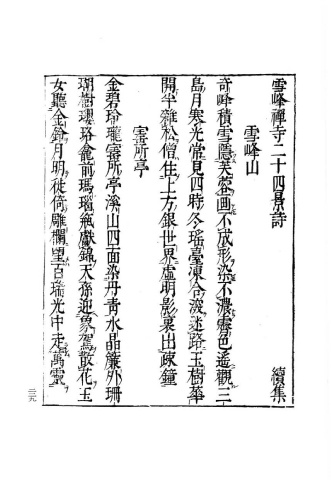 雪峰禪寺二十四景詩　續集
雪峰山
奇峰積雪隱芙蓉画不成形染不濃霽色遙觀三
島月寒光常見四時冬瑤臺凍合深迷路玉樹華
開半雜松僧住上方銀世界虛明影裏出疎鐘
寶所亭
金碧玲瓏寶所亭溪山四面染丹青水晶簾外珊
瑚樹瓔珞龕前瑪瑙瓶獻錦天孫迎象駕散花玉
女聽金鈴月明徒倚雕欄望百瑞光中走萬靈
三十九